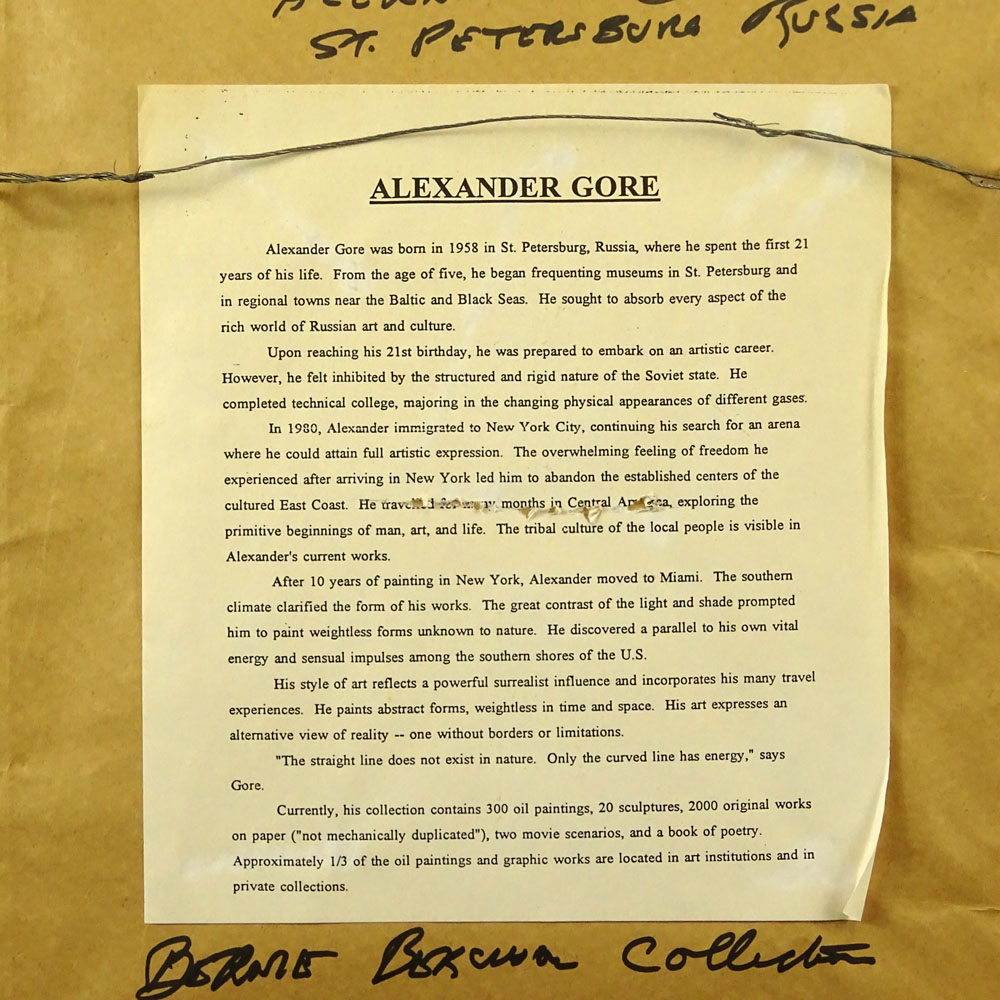 ST. PETERSBURG RUSSIA
ALEXANDER GORE
Alexander Gore was born in 1958 in St. Petersburg, Russia, where he spent the first 21
years of his life. From the age of five, he began frequenting museums in St. Petersburg and
in regional towns near the Baltic and Black Seas. He sought to absorb every aspect of the
rich world of Russian art and culture.
Upon reaching his 21st birthday, he was prepared to embark on an artistic career.
However, he felt inhibited by the structured and rigid nature of the Soviet state. He
completed technical college, majoring in the changing physical appearances of different gases.
In 1980, Alexander immigrated to New York City, continuing his search for an arena
where he could attain full artistic expression. The overwhelming feeling of freedom he
experienced after arriving in New York led him to abandon the established centers of the
cultured East Coast. He travelled for many months in Central America, exploring the
primitive beginnings of man, art, and life. The tribal culture of the local people is visible in
Alexander's current works.
After 10 years of painting in New York, Alexander moved to Miami. The southern
climate clarified the form of his works. The great contrast of the light and shade prompted
him to paint weightless forms unknown to nature. He discovered a parallel to his own vital
energy and sensual impulses among the southern shores of the U.S.
His style of art reflects a powerful surrealist influence and incorporates his many travel
experiences. He paints abstract forms, weightless in time and space. His art expresses an
alternative view of reality -- one without borders or limitations.
"The straight line does not exist in nature. Only the curved line has energy," says
Gore.
Currently, his collection contains 300 oil paintings, 20 sculptures, 2000 original works
on paper ("not mechanically duplicated"), two movie scenarios, and a book of poetry.
Approximately 1/3 of the oil paintings and graphic works are located in art institutions and in
private collections.
BERNIE Collection